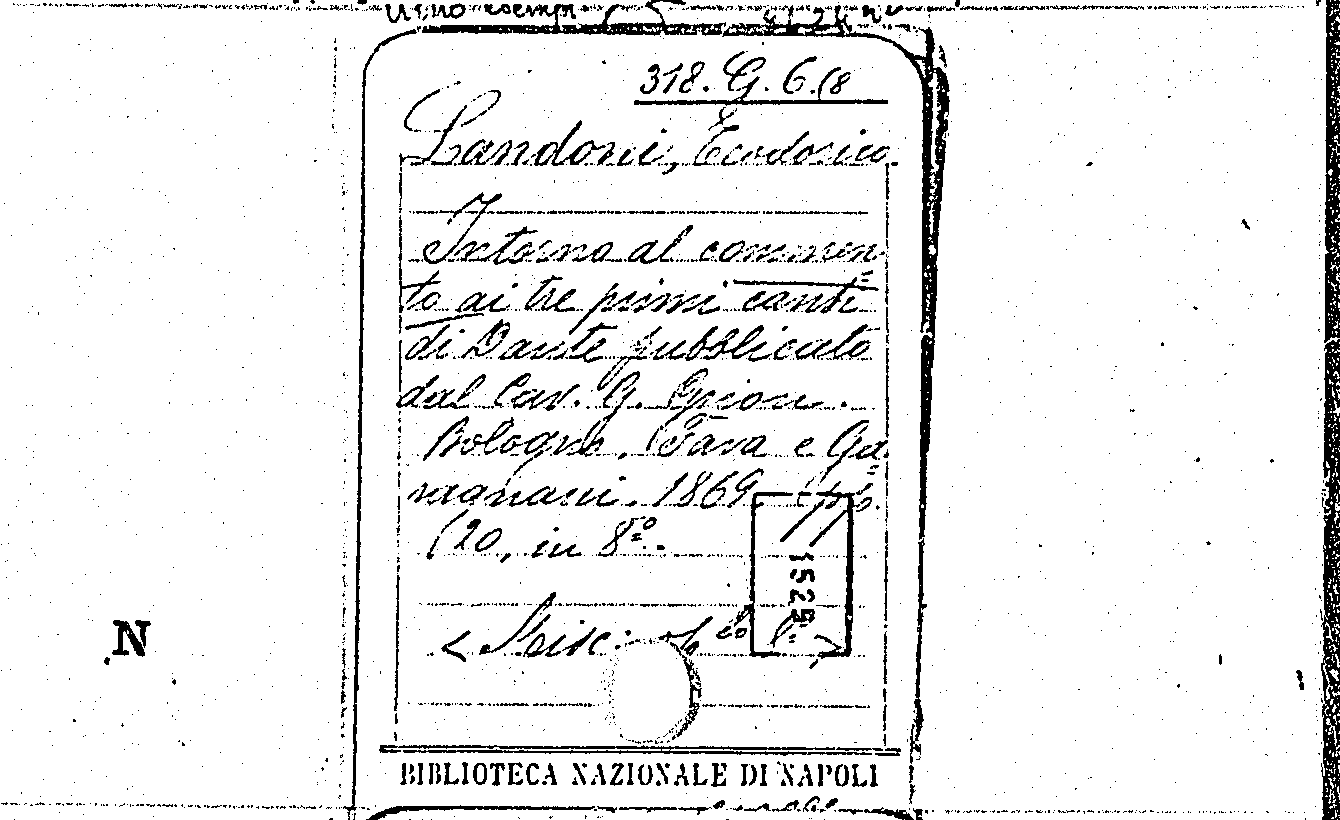 318. G. 6.(8
Landoni, Teodorico.
Intorno al commen=
to ai tre primi canti
di Dante pubblicato
dal Cav. G. Grion.
Bologna. Fava e Ga=
ragnani. 1869. pp.
(20, in 8º.
1529
< Misc.
N
BIBLIOTECA NAZIONALE DI NAPOLI